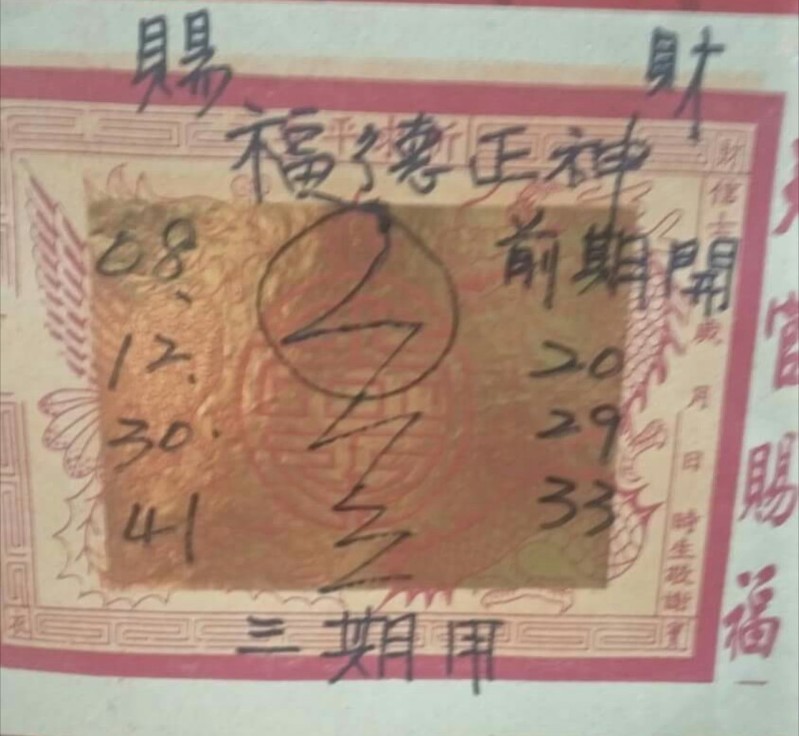 賜 財
福德正神
08、 前期開
12、 20
30. 29
41 33
三期用
財
信士
歲
月
日
時生敬謝
官賜福